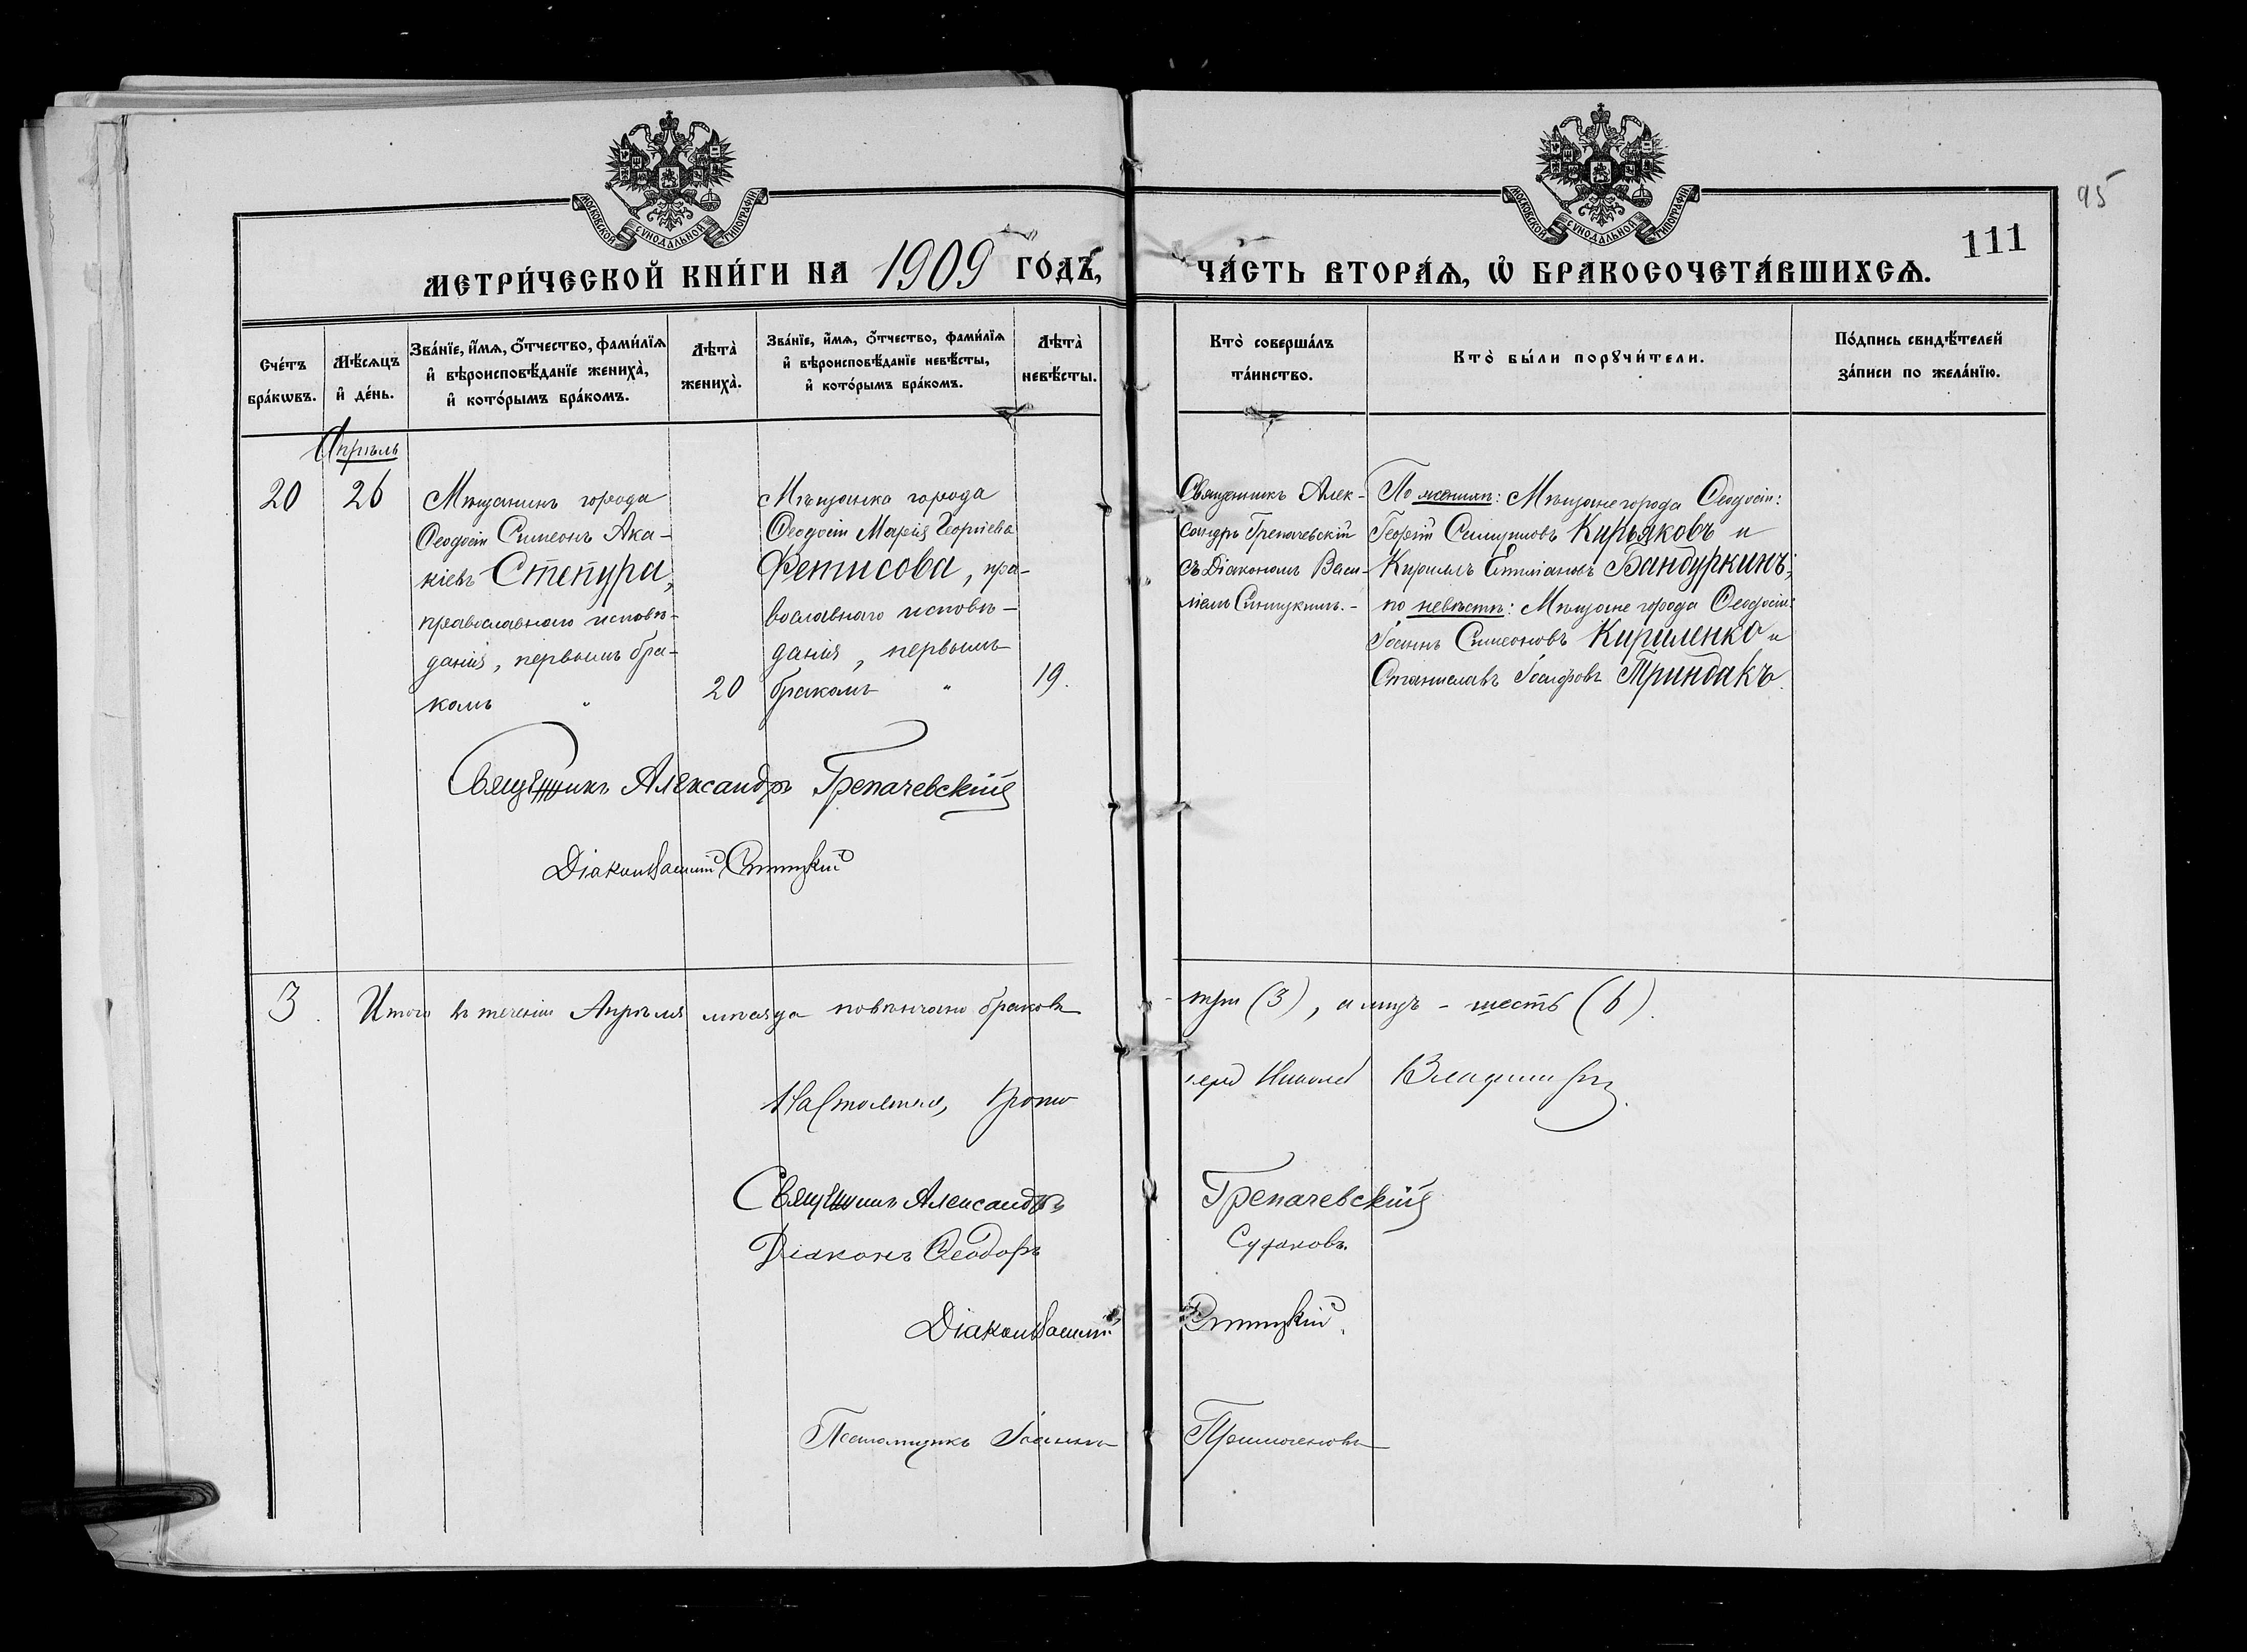 95
111
МОСКОВСКОЙ СѴНОДАЛЬНОЙ ТИПОГРАФІИ
МОСКОВСКОЙ СѴНОДАЛЬНОЙ ТИПОГРАФІИ
МЕТРИ́ЧЕСКОЙ КНИ́ГИ НА 1909 ГО́ДЪ,
ЧА́СТЬ ВТОРА́Ѧ, Ѡ҆ БРАКОСОЧЕТА́ВШИХСѦ.
Сче́тъ
бра́кѡвъ.
Мѣ́сѧцъ
и҆ де́нь.
Зва́нїе, и҆́мѧ, ѻ҆́тчество, фами́лїѧ
и҆ вѣроисповѣ́данїе жениха̀,
и҆ кото́рымъ бра́комъ.
Лѣта̀
жениха̀.
Зва́нїе, и҆́мѧ, ѻ҆́тчество, фами́лїѧ
и҆ вѣроисповѣ́данїе невѣ́сты,
и҆ кото́рымъ бра́комъ.
Лѣта̀
невѣ́сты.
Кто̀ соверша́лъ
та́инство.
Кто̀ бы́ли порꙋчи́тели.
По́дпись свидѣ́телей
за́писи по жела́нїю.
Апрѣль
20
26
Мѣщанинъ города
Ѳеодосіи Симеонъ Ака-
кіевъ Степура,
православнаго исповѣ-
данія, первымъ бра-
комъ "
20
Мѣщанка города
Ѳеодосіи Марія Георгіева
Фетисова, пра-
вославнаго исповѣ-
данія, первымъ
бракомъ "
19.
Священникъ Алек-
сандръ Грепачевскій
съ Діакономъ Васи-
ліемъ Синицкимъ.-
По женихѣ: Мѣщане города Ѳеодосіи:
Георгій Кирьяковъ и
Кириллъ Бандуркинъ;
по невѣстѣ: Мѣщане города Ѳеодосіи:
Іоаннъ Симеоновъ Кириленко и
Станиславъ Іосифовъ Триндакъ.
Священникъ Александръ Грепачевскій
Діаконъ Василій Синицкій
3. Итого въ теченіи Апрѣля мѣсяца повѣнчано браковъ
три (3), а лицъ - шесть (6).
Настоятель, Прото
іерей Николай Владимірскій
Священникъ Александръ Грепачевскій
Діаконъ Ѳеодоръ
Діаконъ Василій Синицкій
Псаломщикъ Іоаннъ